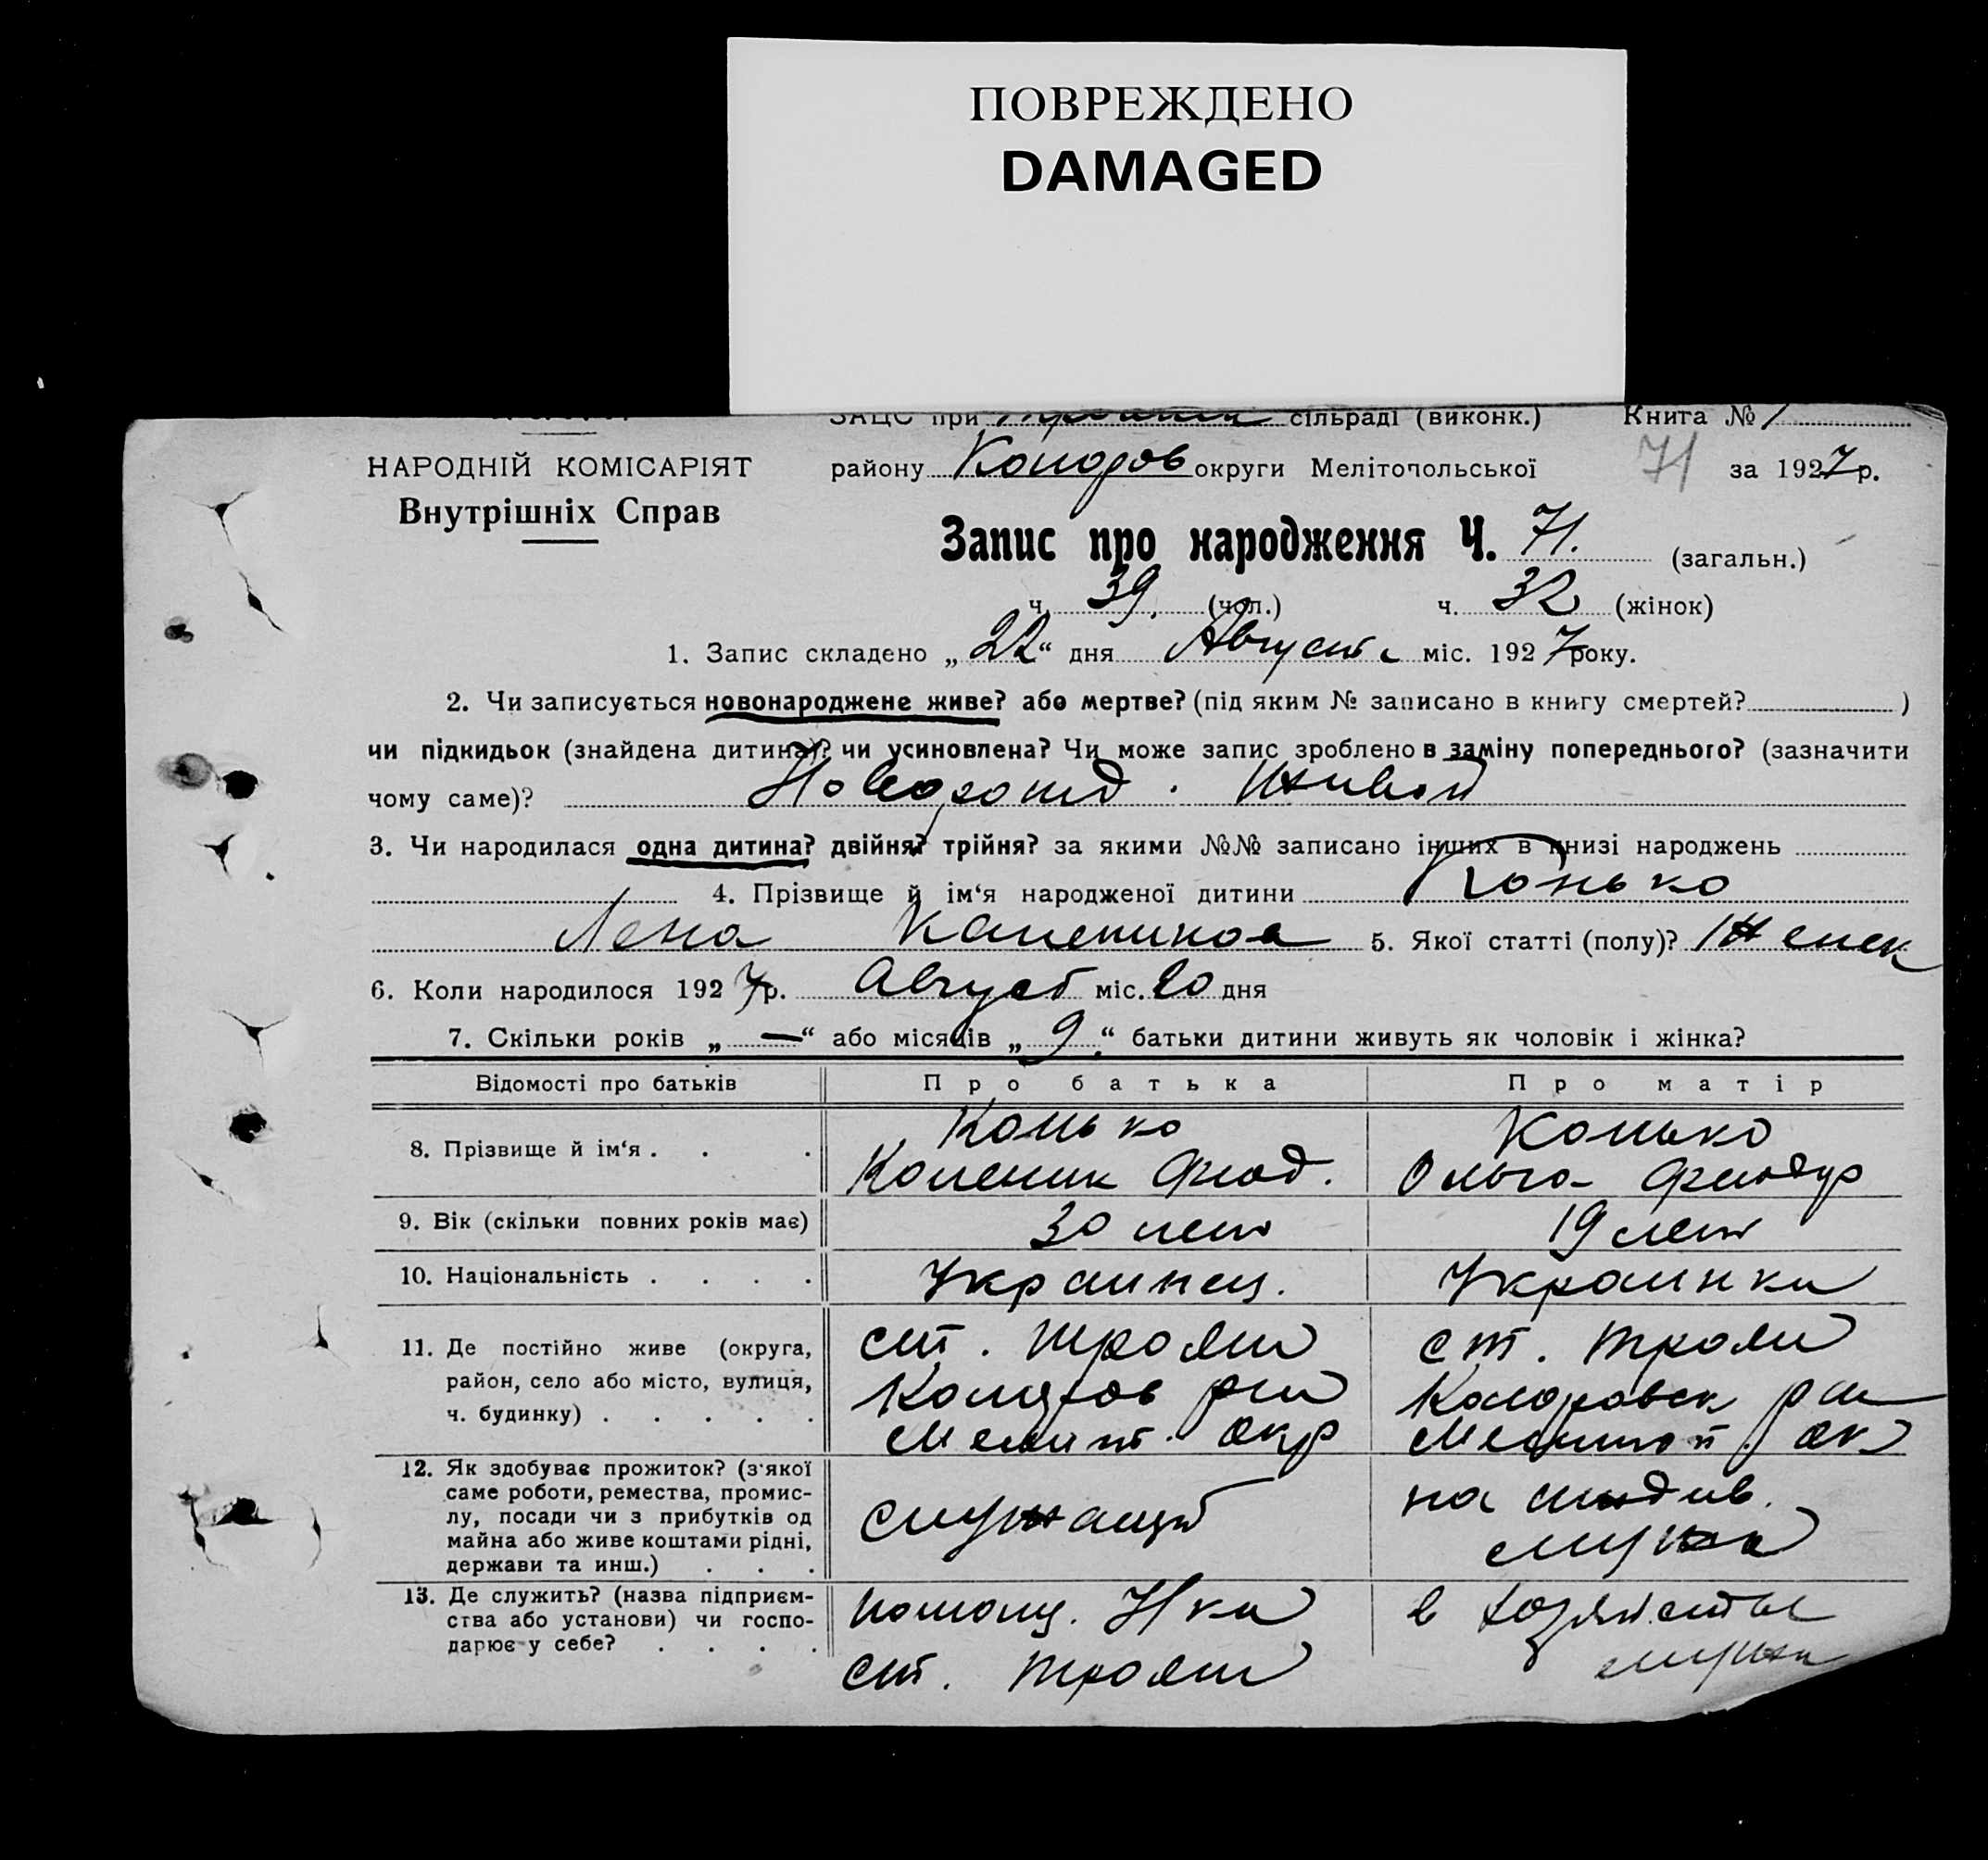 ПОВРЕЖДЕНО
DAMAGED
ЗАЦС при сільраді (виконк.) Книта № 1
НАРОДНІЙ КОМІСАРІЯТ району округи Мелітопольської 71 за 1927 р.
Внутрішніх Справ
Запис про народження Ч. 71. (загальн.)
ч. 39. (чол.) ч. 32 (жінок)
1. Запис складено „22“ дня Августа міс. 1927 року.
2. Чи записується новонароджене живе? або мертве? (під яким № записано в книгу смертей? )
чи підкидьок (знайдена дитина)? чи усиновлена? Чи може запис зроблено в заміну попереднього? (зазначити
чому саме)? Новорожд. Живой
3. Чи народилася одна дитина? двійня? трійня? за якими №№ записано інших в книзі народжень
4. Прізвище й ім‘я народженої дитини Конько
Лена 5. Якої статті (полу)? Женск
6. Коли народилося 1927 р. Август міс. 20 дня
7. Скільки років „—“ або місяців „9.“ батьки дитини живуть як чоловік і жінка?
Відомості про батьків Про батька Про матір
8. Прізвище й ім‘я . . . Конько Конько
Ольга
9. Вік (скільки повних років має) 30 лет 19 лет
10. Національність . . . . Украинец. Украинка
11. Де постійно живе (округа, ст. Трояни ст. Трояни
район, село або місто, вулиця,
ч. будинку) . . . . . Мелит. окр Мелитоп. ок
12. Як здобуває прожиток? (з'якої
саме роботи, ремества, промис- на иждив.
лу, посади чи з прибутків од служащий
майна або живе коштами рідні, мужа
держави та инш.) . . .
13. Де служить? (назва підприєм- помощ. Н-ка в хозяйстве
ства або установи) чи госпо- мужа
дарює у себе? . . . . ст. Трояни